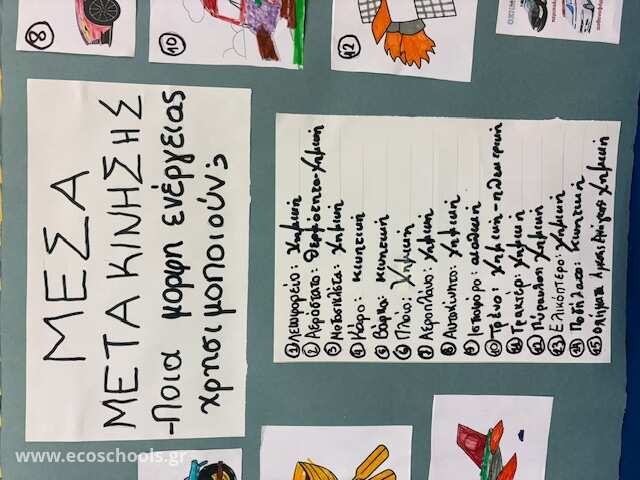 ΜΕΣΑ
ΜΕΤΑΚΙΝΗΣΗΣ
-Ποια μορφη ενέργειας
χρησιμοποιούν;
1 Λεωφορείο: χημική
2 Αερόστατο: θερμότητα-χημική
3 Μοτοσικλέτα: χημική
4 Κάρο: κινητική
5 Βάρκα: κινητική
6 Πλοίο: χημική
7 Αεροπλάνο: χημική
8 Αυτοκίνητο: χημική
9 Ιστιοφόρο: αιολική
10 Τρένο: χημική-ηλεκτρική
11 Τρακτέρ: χημική
12 Πύραυλος: χημική
13 Ελικόπτερο: χημική
14 Ποδήλατο: κινητική
15 Οχήματα Άμεσης Ανάγκης χημική
8
10
12
www.ecoschools.gr